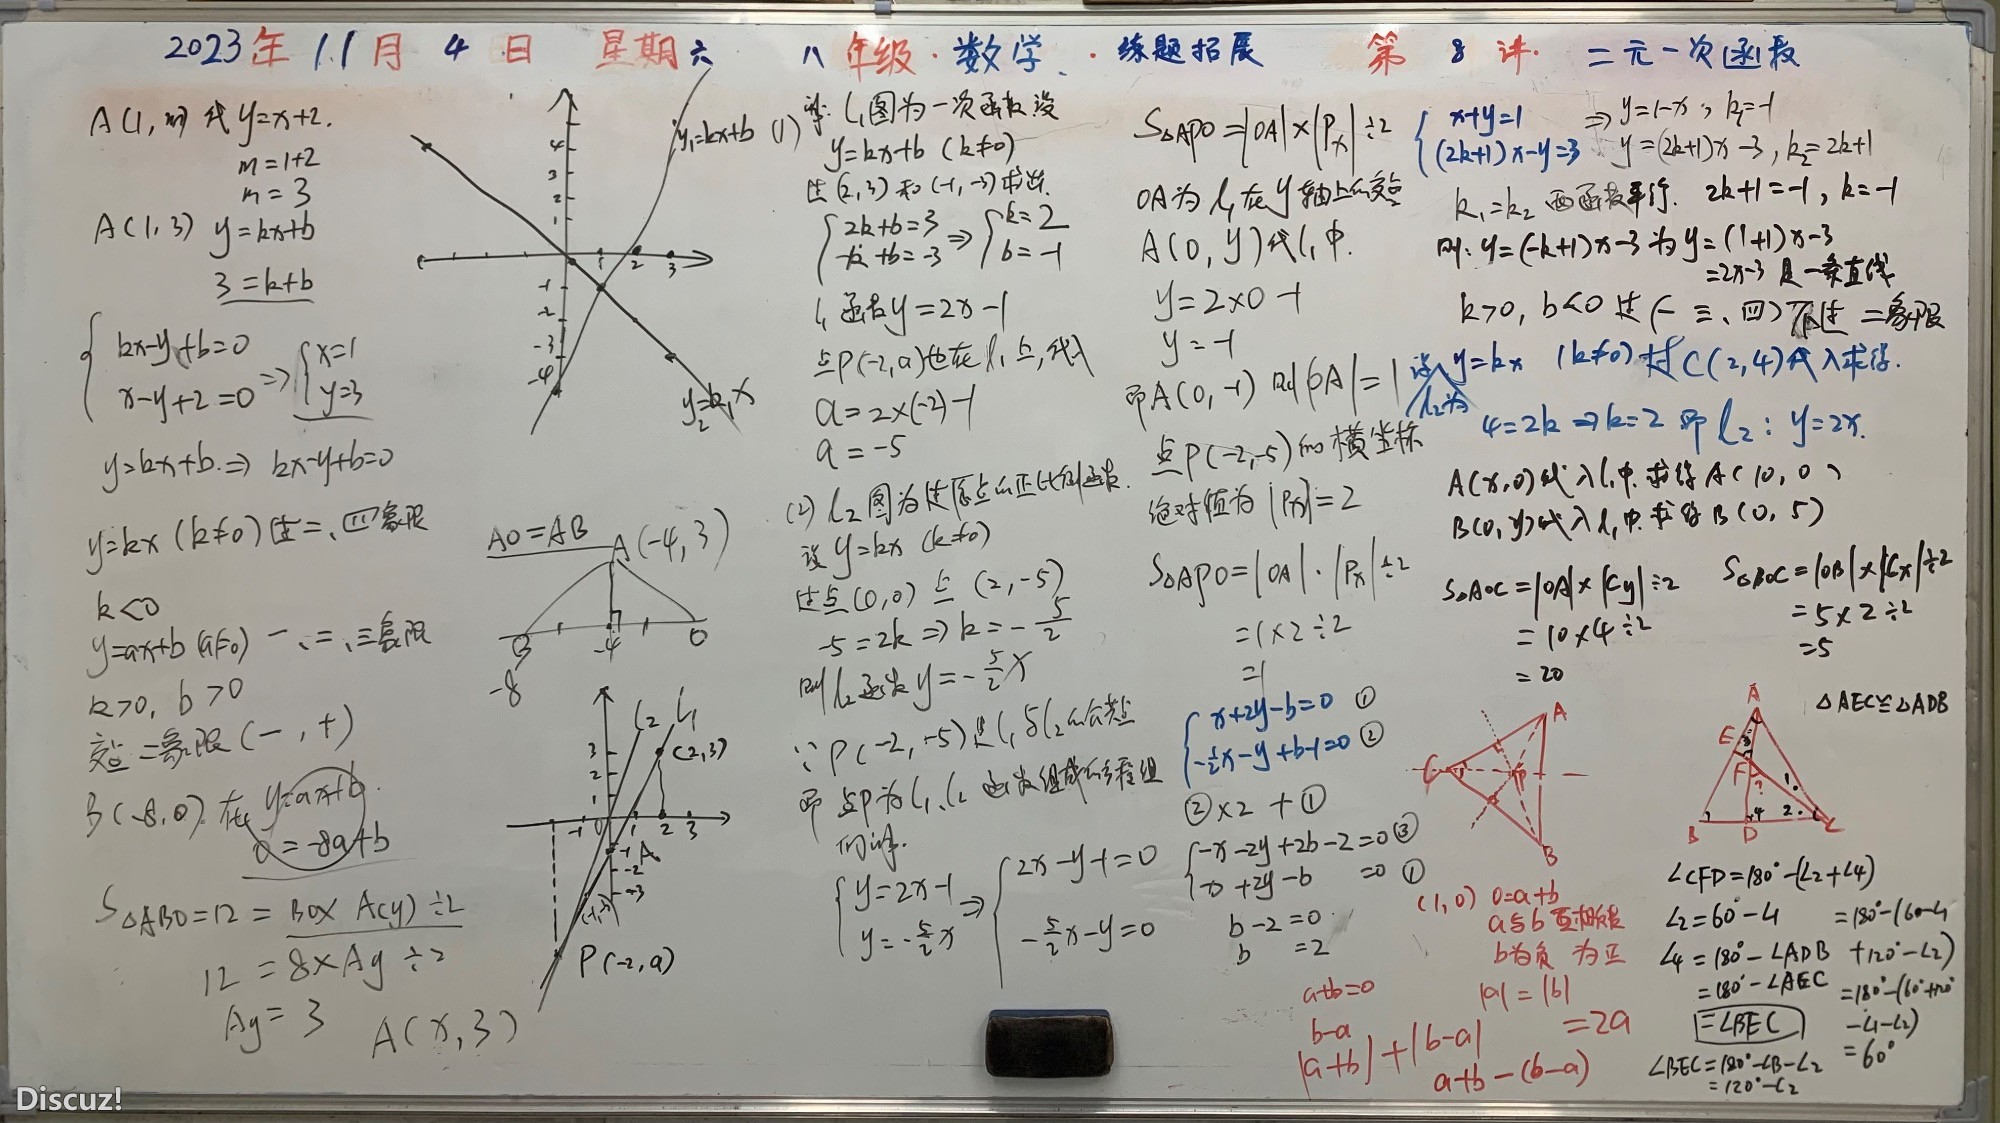 2023年11月4日 星期六 八年级·数学·练题拓展 第8讲·二元一次函数
A(1,m)代y=x+2.
m=1+2
m=3
A(1,3) y=kx+b
3=k+b
kx-y+b=0
x-y+2=0 ⇒ x=1
y=3
y=kx+b.⇒ kx-y+b=0
y=kx (k≠0)过二、四象限
k<0
y=ax+b (a≠0) 一、二、三象限
k>0, b>0
交点二象限(-,+)
B(-8,0) 在 y=ax+b.
0=-8a+b
S△ABO=12=BO×A(y)÷2
12=8×Ay÷2
Ay=3 A(x,3)
4
3
2
1
1 2 3
-1
-2
-3
-4
y₁=kx+b
y₂=k₁x
AO=AB A(-4,3)
B -4 O
-8
l2 l1
(2,3)
3
2
1
-1 0 1 2 3
-1 A
-2
-3
(-1,-3)
P(-2,a)
(1) 解: l₁图为一次函数设
y=kx+b (k≠0)
过(2,3)和(-1,-3)求出.
2k+b=3
-k+b=-3 ⇒ k=2
b=-1
l₁函数y=2x-1
点P(-2,a)也在l₁点,代入
a=2×(-2)-1
a=-5
(2) l₂图为过原点的正比例函数.
设y=kx (k≠0)
过点(0,0) 点(2,-5)
-5=2k⇒k=-5/2
则l₂函数y=-5/2x
∵P(-2,-5)是l₁与l₂的公共点
即点P为l₁、l₂函数组成的方程组
的解.
y=2x-1
y=-5/2x ⇒ 2x-y-1=0
-5/2x-y=0
S△APO=|OA|×|Px|÷2
OA为l₁在y轴上的交点
A(0,y)代l₁中.
y=2×0-1
y=-1
即A(0,-1) 则|OA|=1
点P(-2,-5)的横坐标
绝对值为|Px|=2
S△APO=|OA|·|Px|÷2
=1×2÷2
=1
x+2y-b=0 ①
-1/2x-y+b-1=0 ②
②×2+①
-x-2y+2b-2=0 ③
x+2y-b=0 ①
b-2=0
b=2
x+y=1 ⇒y=1-x, k₁=-1
(2k+1)x-y=3 y=(2k+1)x-3, k₂=2k+1
k₁=k₂ 两函数平行. 2k+1=-1, k=-1
则:y=(-k+1)x-3为y=(1+1)x-3
=2x-3 是一条直线
k>0, b<0 过(一、三、四)不过二象限
设y=kx (k≠0) 将C(2,4)代入求得.
l₂为
4=2k⇒k=2 即l₂:y=2x.
A(x,0)代入l₁中.求得A(10,0)
B(0,y)代入l₁中.求得B(0,5)
S△AOC=|OA|×|Cy|÷2
=10×4÷2
=20
S△BOC=|OB|×|Cx|÷2
=5×2÷2
=5
A
C P
B
A
E
F
B D C
1
2
3
4
△AEC≌△ADB
(1,0) 0=a+b
a与b互为相反数
b为负 为正
a+b=0 |a|=|b|
b-a
|a+b|+|b-a| =2a
a+b-(b-a)
∠CFD=180°-(∠2+∠4)
∠2=60°-∠1 =180°-(60-∠1
∠4=180°-∠ADB +120°-∠2)
=180°-∠AEC =180°-(60°+120°
=∠BEC -∠1-∠2)
∠BEC=180°-∠B-∠2 =60°
=120°-∠2
Discuz!